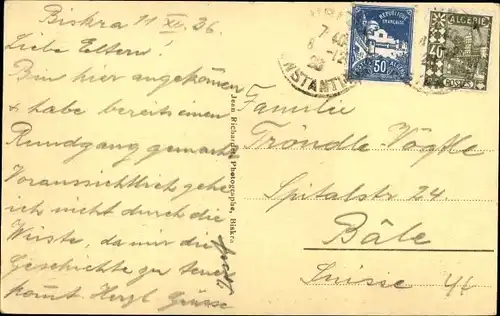 Biskra 11 XII. 26.
Liebe Eltern!
Bin hier angekommen
& habe bereits einen
Rundgang gemacht
Voraussichtlich gehe
ich nicht durch die
Wüste, da mir die
Geschichte zu teuer
kommt. Herzl Grüsse
Jean Richarde, Photographe, Biskra
REPUBLIQUE
FRANÇAISE
50
ALGERIE
POSTES
Familie
Tröndle-Vögtle
Spitalstr 24
Bâle
Suisse